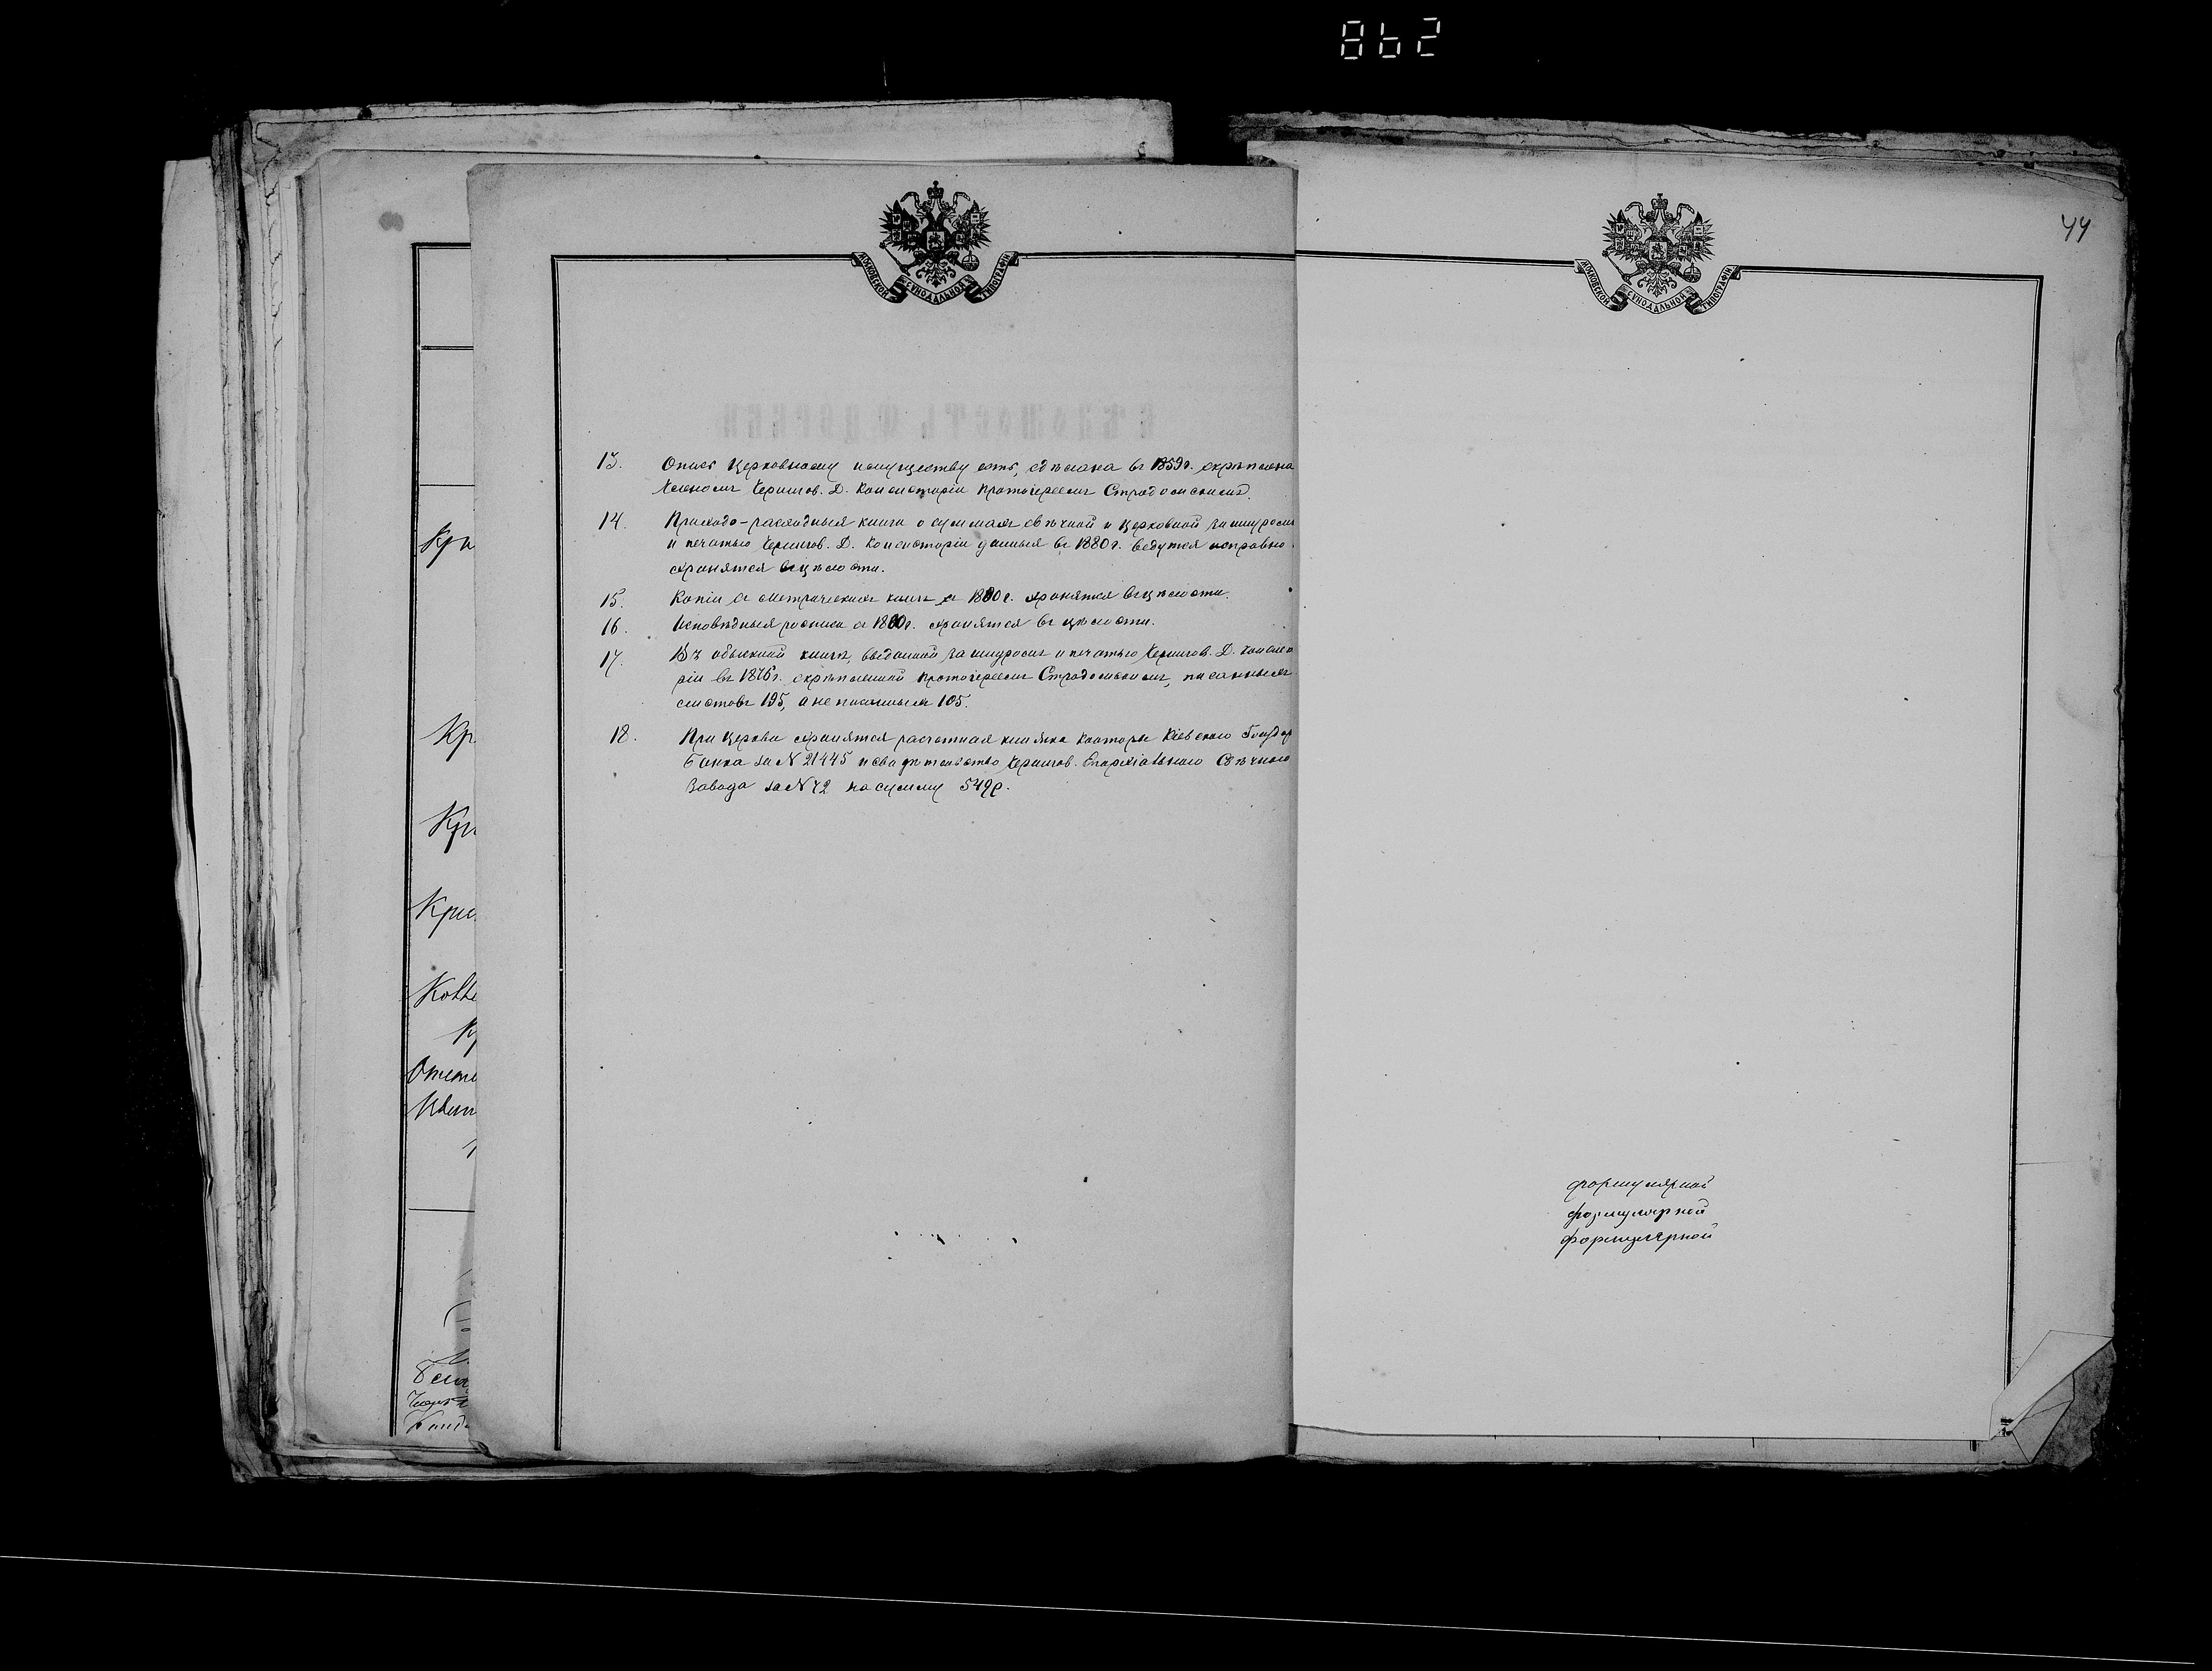 862
44
МОСКОВСКОЙ СѴНОДАЛЬНОЙ ТИПОГРАФІИ
МОСКОВСКОЙ СѴНОДАЛЬНОЙ ТИПОГРАФІИ
13. Опись церковному имуществу есть, сдѣлана въ 1859 г. скрѣплена
Членомъ Чернигов. Д. Консисторіи Протоіереемъ Страдомскимъ.
14. Приходо-расходныя книги о суммахъ свѣчной и церковной за шнуромъ
и печатью Чернигов. Д. Консисторіи данныя въ 1880 г. ведутся исправно
хранятся въ цѣлости.
15. Копіи съ метрическихъ книгъ съ 1800 г. хранятся въ цѣлости.
16. Исповѣдныя росписи съ 1800 г. хранятся въ цѣлости.
17. Въ обыскной книгѣ, выданной за шнуромъ и печатью Чернигов. Д. Консисто
ріи въ 1876 г. скрѣпленной Протоіереемъ Страдомскимъ, писанныхъ
листовъ 195, а не писанныхъ 105.
18. При церкви хранятся расчетная книжка Конторы Кіевского Государ
Банка за N 21445 и свидѣтельство Чернигов. Епархіальнаго Свѣчнаго
Завода за N 72 на сумму 549 р.
Кри
Кр
Кри
Кри
формулярной
формулярной
формулярной